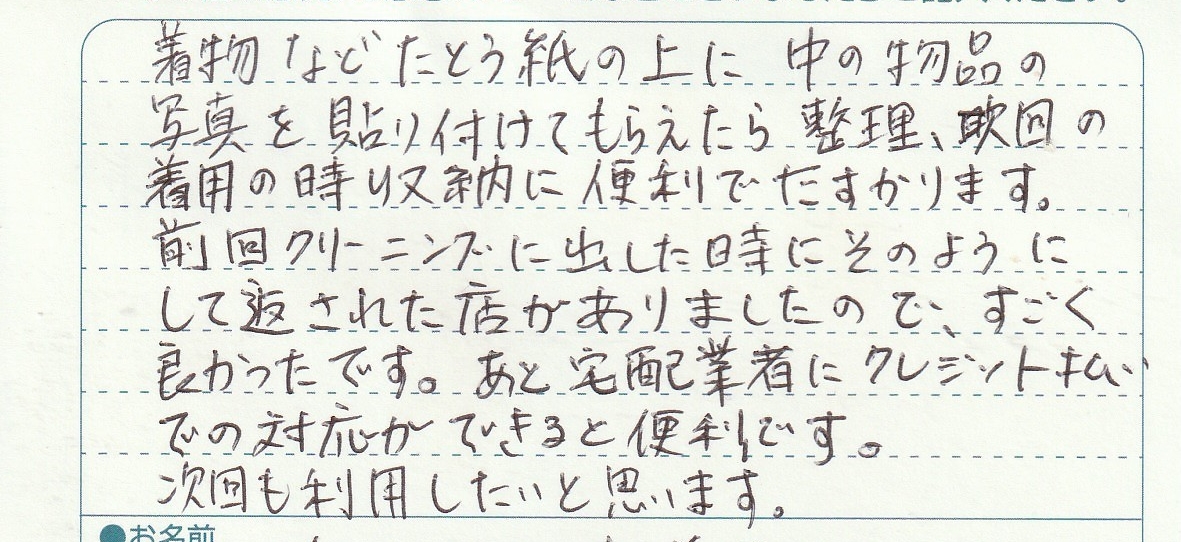 着物などたとう紙の上に 中の物品の
写真を貼り付けてもらえたら整理、次回の
着用の時収納に便利でたすかります。
前回クリーニングに出した時にそのように
して返された店がありましたので、すごく
良かったです。あと宅配業者にクレジット払い
での対応ができると便利です。
次回も利用したいと思います。
●お名前